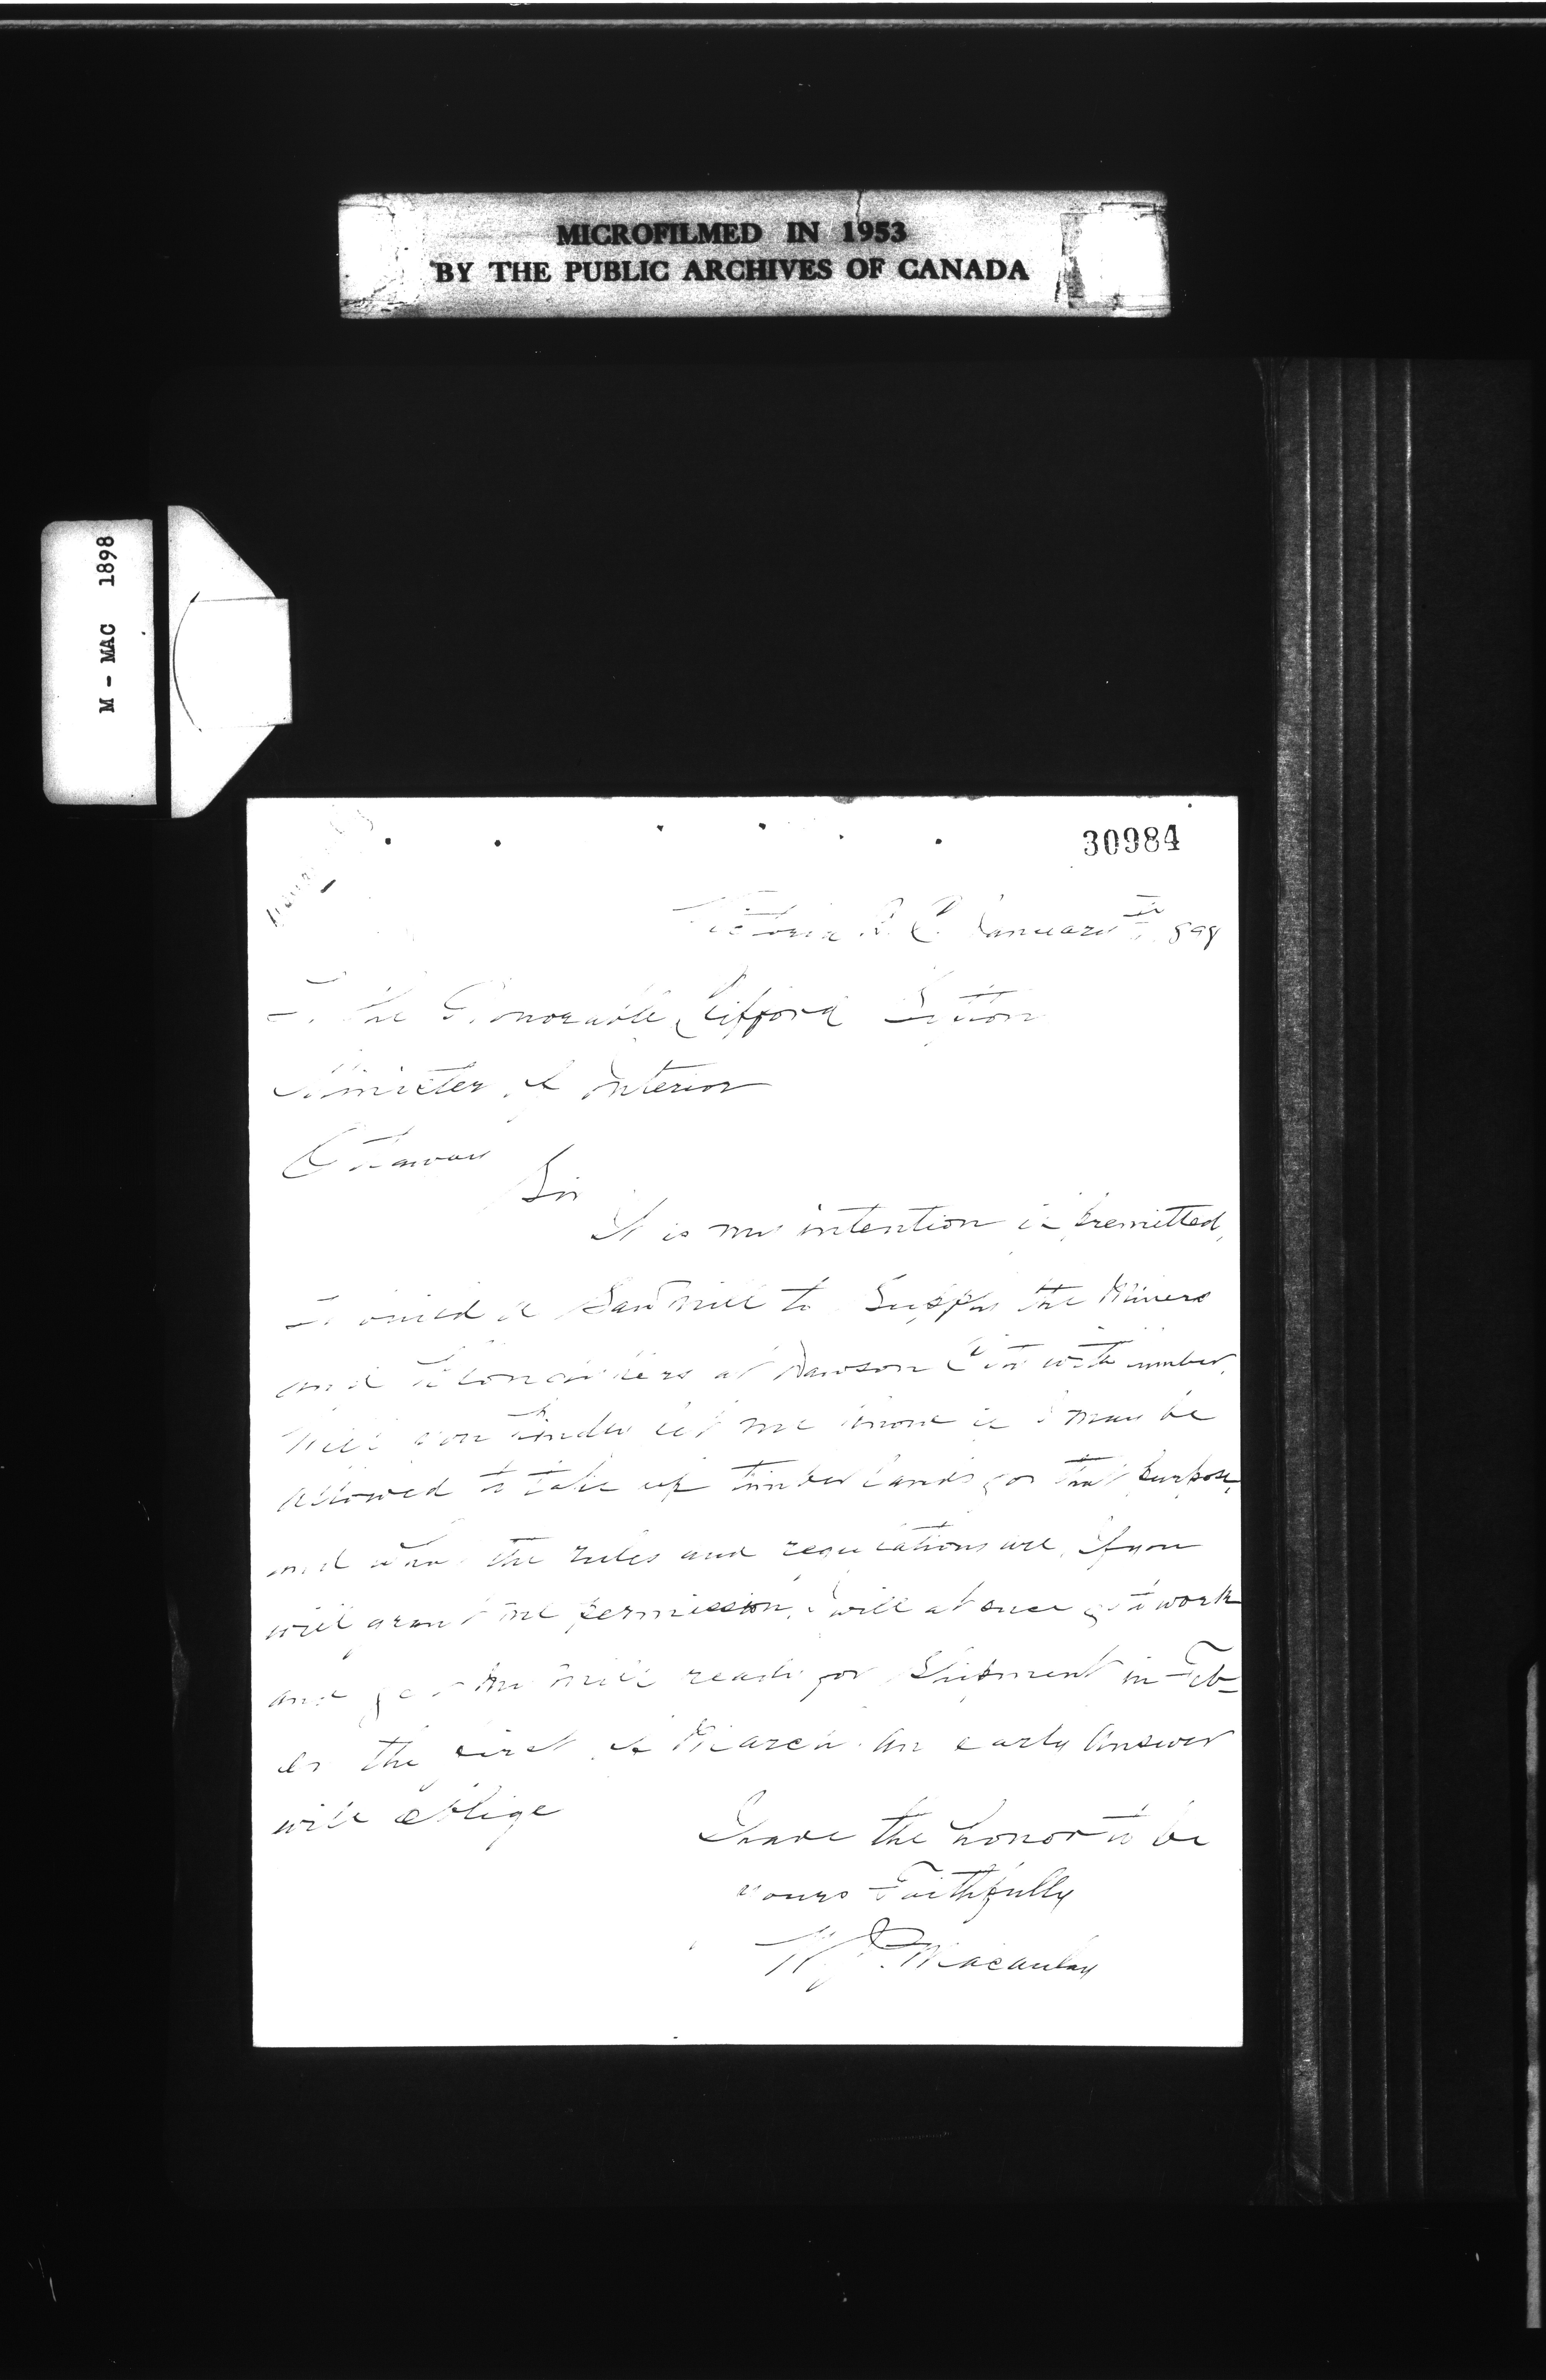 MICROFILMED IN 1953
BY THE PUBLIC ARCHIVES OF CANADA
M - MAC 1898
30984
Victoria B. C. January 1898
To the Honorable Clifford Sifton
Minister of Interior
Ottawa
Sir
It is my intention if premitted,
To build a Sawmill to Supply the Miners
and at Dawson City with lumber,
Will you kindly let me know if I may be
allowed to take up timber lands for that purpose,
and what the rules and regulations are, if you
will grant me permission, I will at once go to work
and get the mill ready for Shipment in Feb-
or the first of March. An early Answer
will oblige
I have the honor to be
yours Faithfully
Macaulay